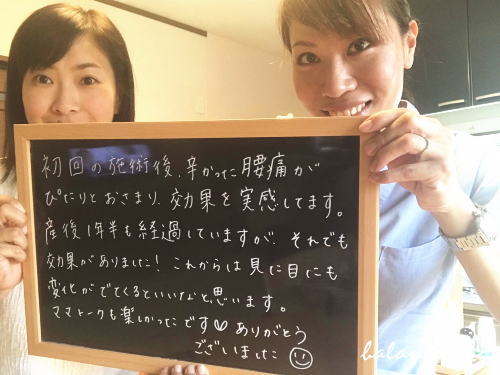 初回の施術後、辛かった腰痛が
ぴたりとおさまり、効果を実感してます。
産後1年半も経過していますが、それでも
効果がありました！これからは見た目にも
変化がでてくるといいなと思います。
ママトークも楽しかったです♡ありがとう
ございました☺